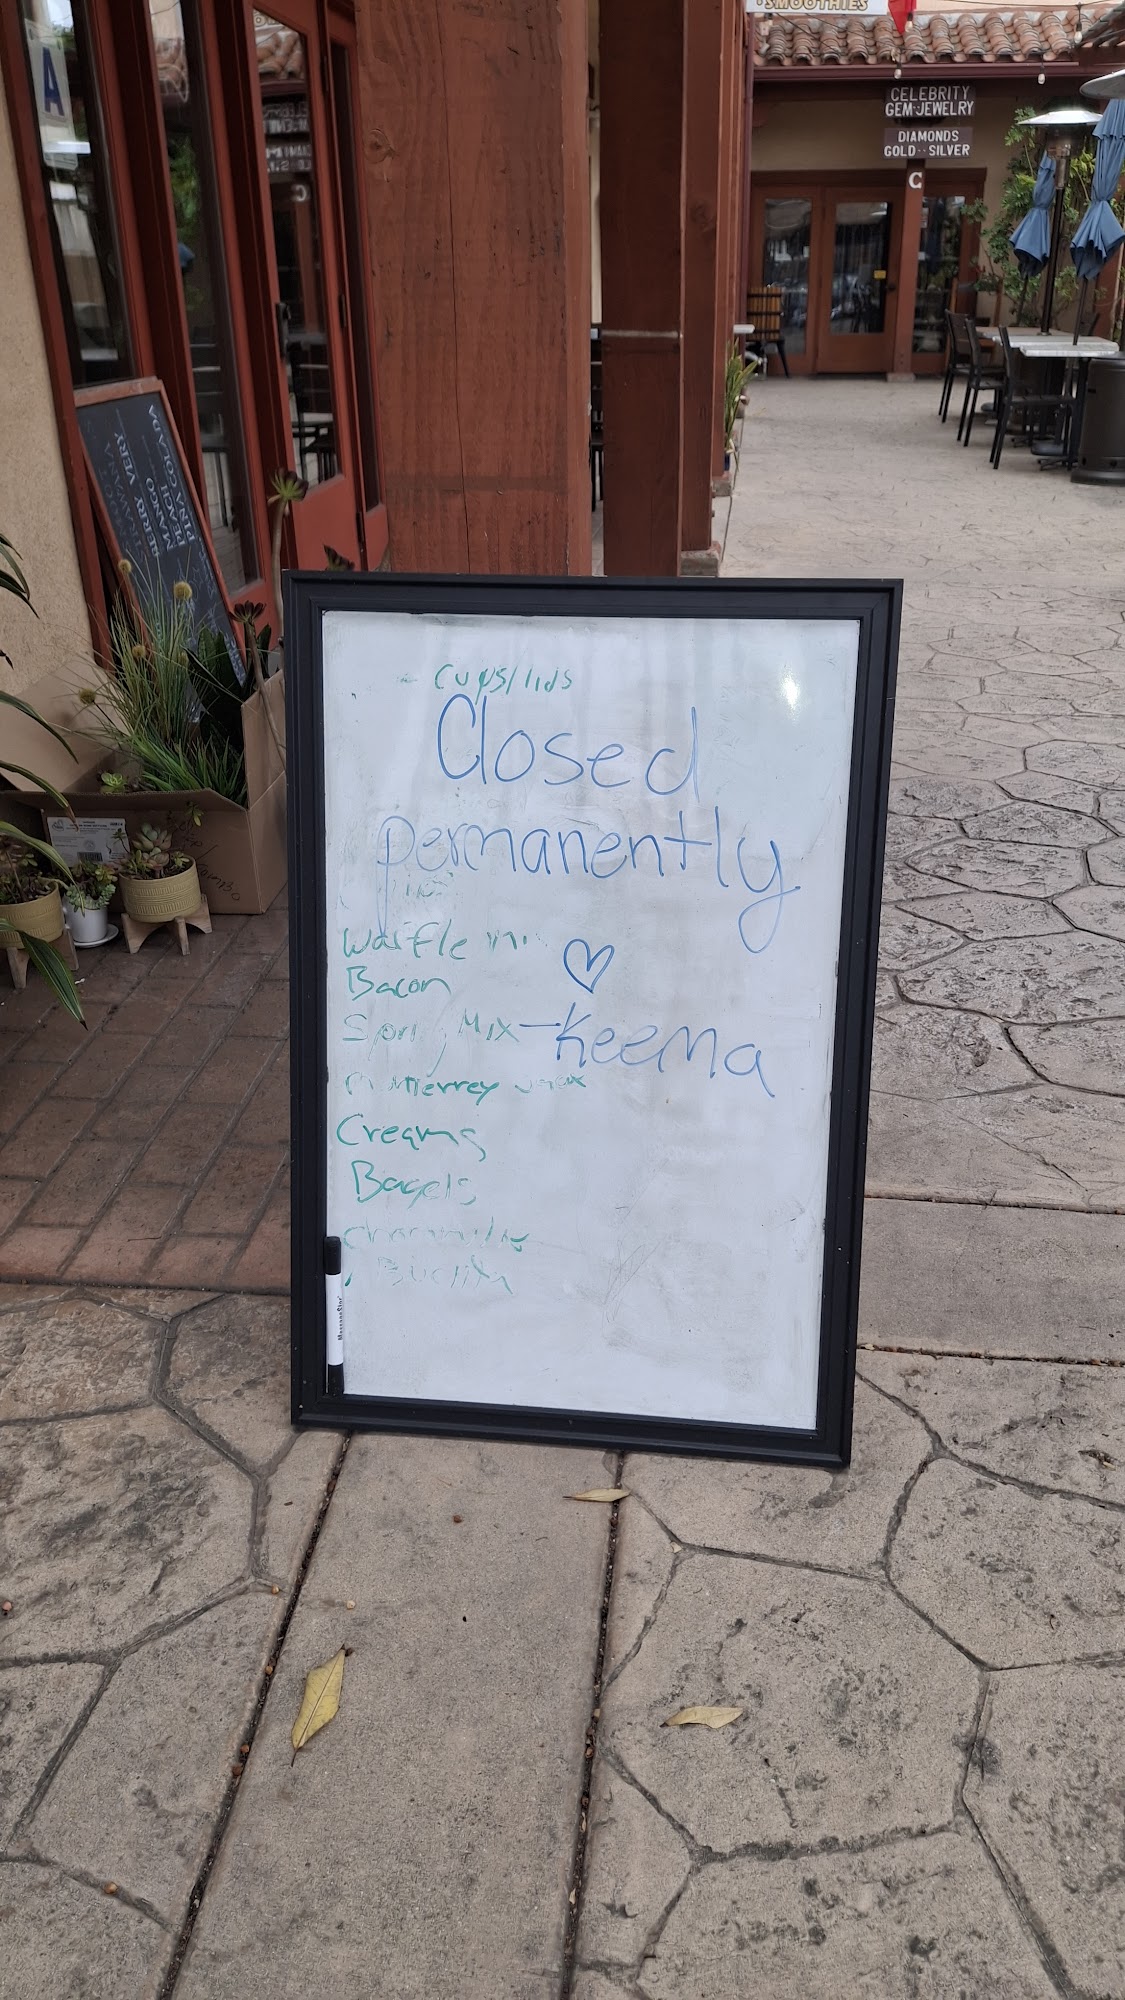 SMOOTHIES
CELEBRITY
GEM-JEWELRY
DIAMONDS
GOLD··SILVER
C
A
BERRY VERY
MANGO
PEACH
PINA COLADA
cups/lids
Closed
permanently
Waffle
Bacon
Mix
-Keema
Creams
Bagels